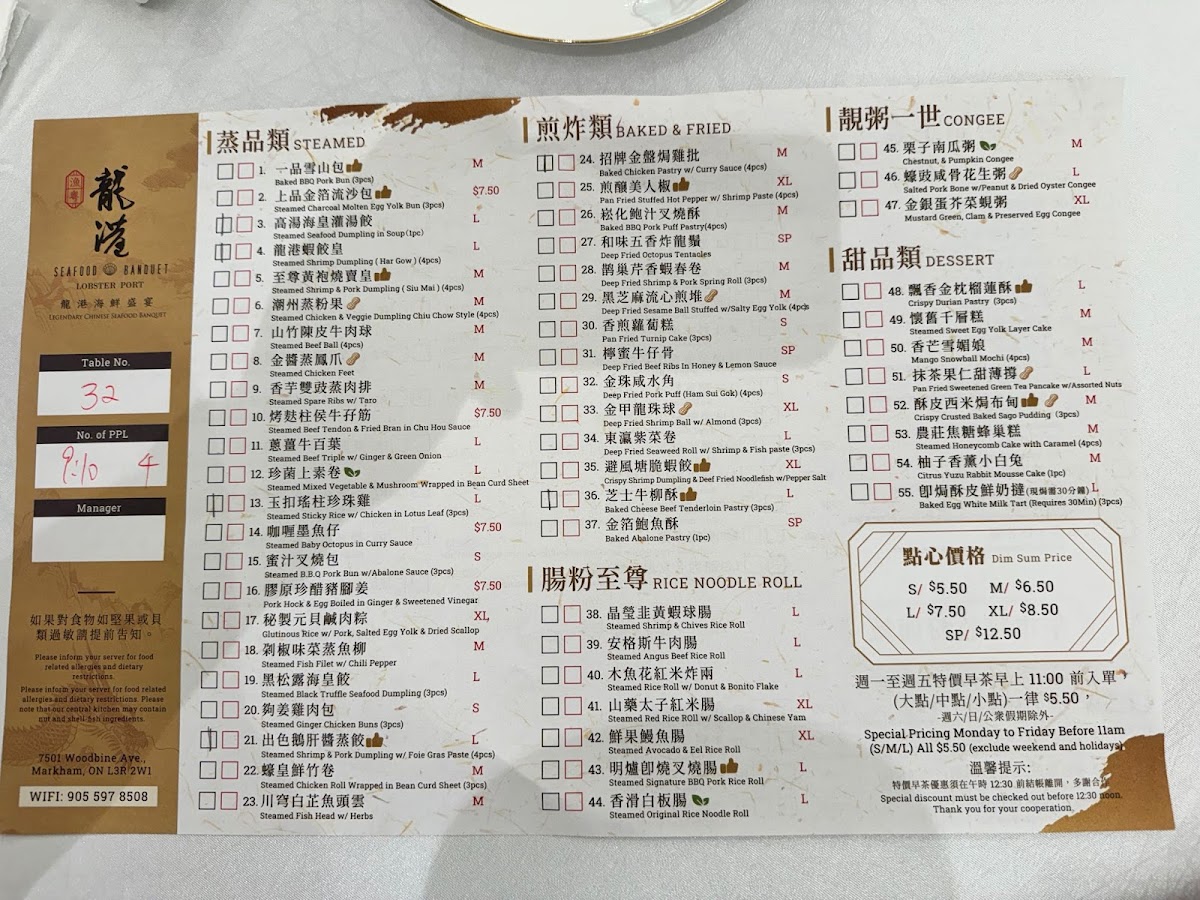 漁粵
龍港
SEAFOOD BANQUET
LOBSTER PORT
龍港海鮮盛宴
LEGENDARY CHINESE SEAFOOD BANQUET
Table No.
32
No. of PPL
9:10 4
Manager
如果對食物如堅果或貝
類過敏請提前告知。
Please inform your server for food
related allergies and dietary
restrictions.
Please inform your server for food related
allergies and dietary restrictions. Please
note that our central kitchen may contain
nut and shell-fish ingredients.
7501 Woodbine Ave.,
Markham, ON L3R 2W1
WIFI: 905 597 8508
蒸品類 STEAMED
1. 一品雪山包 M
Baked BBQ Pork Bun (3pcs)
2. 上品金箔流沙包 $7.50
Steamed Charcoal Molten Egg Yolk Bun (3pcs)
3. 高湯海皇灌湯餃 L
Steamed Seafood Dumpling in Soup (1pc)
4. 龍港蝦餃皇 L
Steamed Shrimp Dumpling ( Har Gow ) (4pcs)
5. 至尊黃袍燒賣皇 M
Steamed Shrimp & Pork Dumpling ( Siu Mai ) (4pcs)
6. 潮州蒸粉果 M
Steamed Chicken & Veggie Dumpling Chiu Chow Style (4pcs)
7. 山竹陳皮牛肉球 M
Steamed Beef Ball (4pcs)
8. 金醬蒸鳳爪 M
Steamed Chicken Feet
9. 香芋雙豉蒸肉排 M
Steamed Spare Ribs w/ Taro
10. 烤麩柱侯牛孖筋 $7.50
Steamed Beef Tendon & Fried Bran in Chu Hou Sauce
11. 蔥薑牛百葉 L
Steamed Beef Triple w/ Ginger & Green Onion
12. 珍菌上素卷 L
Steamed Mixed Vegetable & Mushroom Wrapped in Bean Curd Sheet
13. 玉扣瑤柱珍珠雞 L
Steamed Sticky Rice w/ Chicken in Lotus Leaf (3pcs)
14. 咖喱墨魚仔 $7.50
Steamed Baby Octopus in Curry Sauce
15. 蜜汁叉燒包 S
Steamed B.B.Q Pork Bun w/Abalone Sauce (3pcs)
16. 膠原珍醋豬腳姜 $7.50
Pork Hock & Egg Boiled in Ginger & Sweetened Vinegar
17. 秘製元貝鹹肉粽 XL
Glutinous Rice w/ Pork, Salted Egg Yolk & Dried Scallop
18. 剁椒味菜蒸魚柳 M
Steamed Fish Filet w/ Chili Pepper
19. 黑松露海皇餃 L
Steamed Black Truffle Seafood Dumpling (3pcs)
20. 夠姜雞肉包 S
Steamed Ginger Chicken Buns (3pcs)
21. 出色鵝肝醬蒸餃 L
Steamed Shrimp & Pork Dumpling w/ Foie Gras Paste (4pcs)
22. 蠔皇鮮竹卷 M
Steamed Chicken Roll Wrapped in Bean Curd Sheet (3pcs)
23. 川穹白芷魚頭雲 M
Steamed Fish Head w/ Herbs
煎炸類 BAKED & FRIED
24. 招牌金盤焗雞批 M
Baked Chicken Pastry w/ Curry Sauce (4pcs)
25. 煎釀美人椒 XL
Pan Fried Stuffed Hot Pepper w/ Shrimp Paste (4pcs)
26. 崧化鮑汁叉燒酥 M
Baked BBQ Pork Puff Pastry(4pcs)
27. 和味五香炸龍鬚 SP
Deep Fried Octopus Tentacles
28. 鵲巢芹香蝦春卷 M
Deep Fried Shrimp & Pork Spring Roll (3pcs)
29. 黑芝麻流心煎堆 M
Deep Fried Sesame Ball Stuffed w/Salty Egg Yolk (4pcs
30. 香煎蘿蔔糕 S
Pan Fried Turnip Cake (3pcs)
31. 檸蜜牛仔骨 SP
Deep Fried Beef Ribs In Honey & Lemon Sauce
32. 金珠咸水角 S
Deep Fried Pork Puff (Ham Sui Gok) (4pcs)
33. 金甲龍珠球 XL
Deep Fried Shrimp Ball w/ Almond (3pcs)
34. 東瀛紫菜卷 L
Deep Fried Seaweed Roll w/ Shrimp & Fish paste (3pcs)
35. 避風塘脆蝦餃 XL
Crispy Shrimp Dumpling & Deef Fried Noodlefish w/Pepper Salt
36. 芝士牛柳酥 L
Baked Cheese Beef Tenderloin Pastry (3pcs)
37. 金箔鮑魚酥 SP
Baked Abalone Pastry (1pc)
腸粉至尊 RICE NOODLE ROLL
38. 晶瑩韭黃蝦球腸 L
Steamed Shrimp & Chives Rice Roll
39. 安格斯牛肉腸 L
Steamed Angus Beef Rice Roll
40. 木魚花紅米炸兩 L
Steamed Rice Roll w/ Donut & Bonito Flake
41. 山藥太子紅米腸 XL
Steamed Red Rice ROll w/ Scallop & Chinese Yam
42. 鮮果鰻魚腸 XL
Steamed Avocado & Eel Rice Roll
43. 明爐卽燒叉燒腸 L
Steamed Signature BBQ Pork Rice Roll
44. 香滑白板腸 L
Steamed Original Rice Noodle Roll
靚粥一世 CONGEE
45. 栗子南瓜粥 M
Chestnut, & Pumpkin Congee
46. 蠔豉咸骨花生粥 L
Salted Pork Bone w/Peanut & Dried Oyster Congee
47. 金銀蛋芥菜蜆粥 XL
Mustard Green, Clam & Preserved Egg Congee
甜品類 DESSERT
48. 飄香金枕榴蓮酥 L
Crispy Durian Pastry (3pcs)
49. 懷舊千層糕 M
Steamed Sweet Egg Yolk Layer Cake
50. 香芒雪媚娘 M
Mango Snowball Mochi (4pcs)
51. 抹茶果仁甜薄撐 L
Pan Fried Sweetened Green Tea Pancake w/Assorted Nuts
52. 酥皮西米焗布甸 M
Crispy Crusted Baked Sago Pudding (3pcs)
53. 農莊焦糖蜂巢糕 M
Steamed Honeycomb Cake with Caramel (4pcs)
54. 柚子香薰小白兔 M
Citrus Yuzu Rabbit Mousse Cake (1pc)
55. 卽焗酥皮鮮奶撻(現焗需30分鐘) L
Baked Egg White Milk Tart (Requires 30Min) (3pcs)
點心價格 Dim Sum Price
S/ $5.50 M/ $6.50
L/ $7.50 XL/ $8.50
SP/ $12.50
週一至週五特價早茶早上 11:00 前入單，
(大點/中點/小點)一律 $5.50，
-週六/日/公衆假期除外-
Special Pricing Monday to Friday Before 11am
(S/M/L) All $5.50 (exclude weekend and holidays)
溫馨提示:
特價早茶優惠須在午時 12:30 前結帳離開，多謝合
Special discount must be checked out before 12:30 noon.
Thank you for your cooperation.